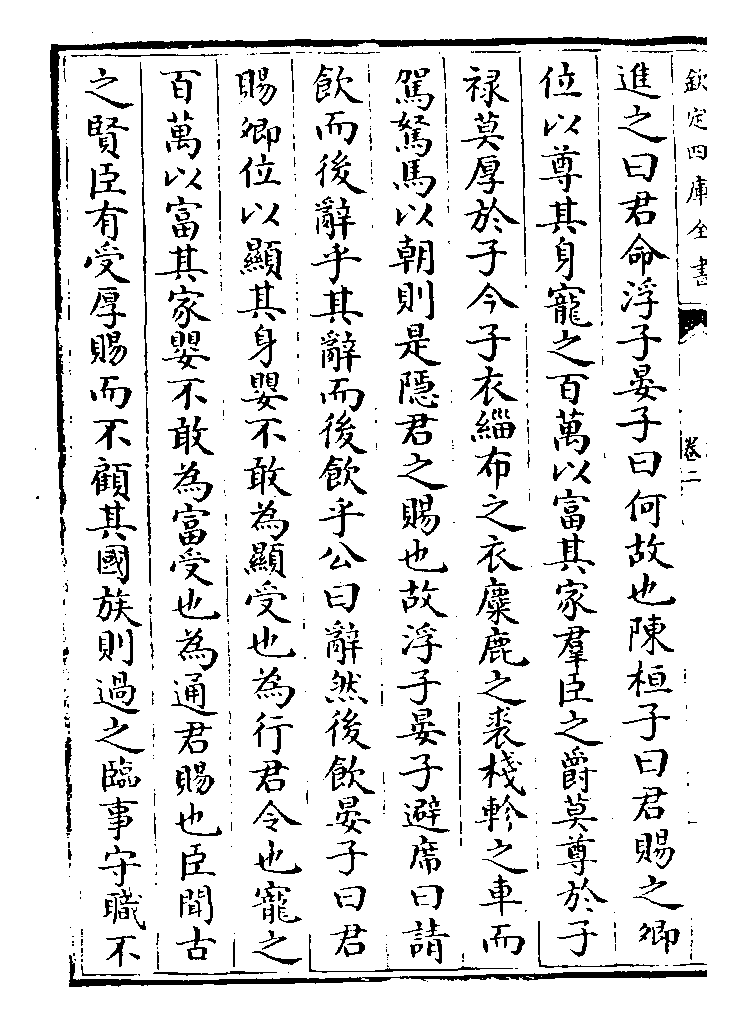 欽定四庫全書
卷二
進之曰君命浮子晏子曰何故也陳桓子曰君賜之卿
位以尊其身寵之百萬以富其家羣臣之爵莫尊於子
禄莫厚於子今子衣緇布之衣麋鹿之裘棧軫之車而
駕駑馬以朝則是隱君之賜也故浮子晏子避席曰請
飲而後辭乎其辭而後飲乎公曰辭然後飲晏子曰君
賜卿位以顯其身嬰不敢為顯受也為行君令也寵之
百萬以富其家嬰不敢為富受也為通君賜也臣聞古
之賢臣有受厚賜而不顧其國族則過之臨事守職不